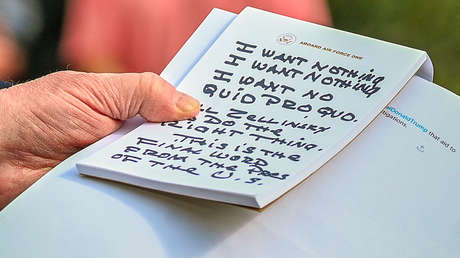 ABOARD AIR FORCE ONE
I WANT NOTHING
I WANT NOTHING
I WANT NO
QUID PRO QUO.
TELL ZELLINSKY
TO DO THE
RIGHT THING.
THIS IS THE
FINAL WORD
FROM THE PRES
OF THE U.S.
DonaldTrump that aid to